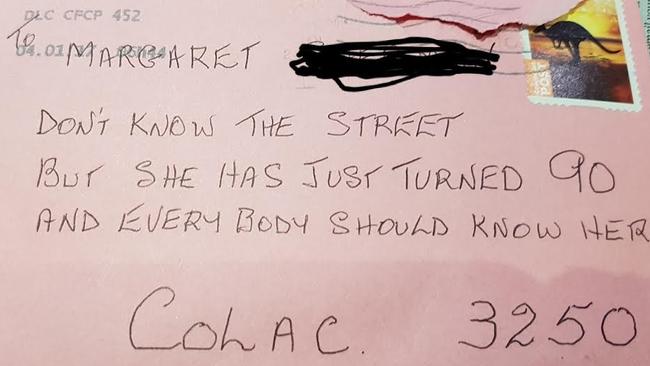 DLC CFCP 452
04.01
To MARGARET
DON'T KNOW THE STREET
BUT SHE HAS JUST TURNED 90
AND EVERY BODY SHOULD KNOW HER
COLAC. 3250
POST